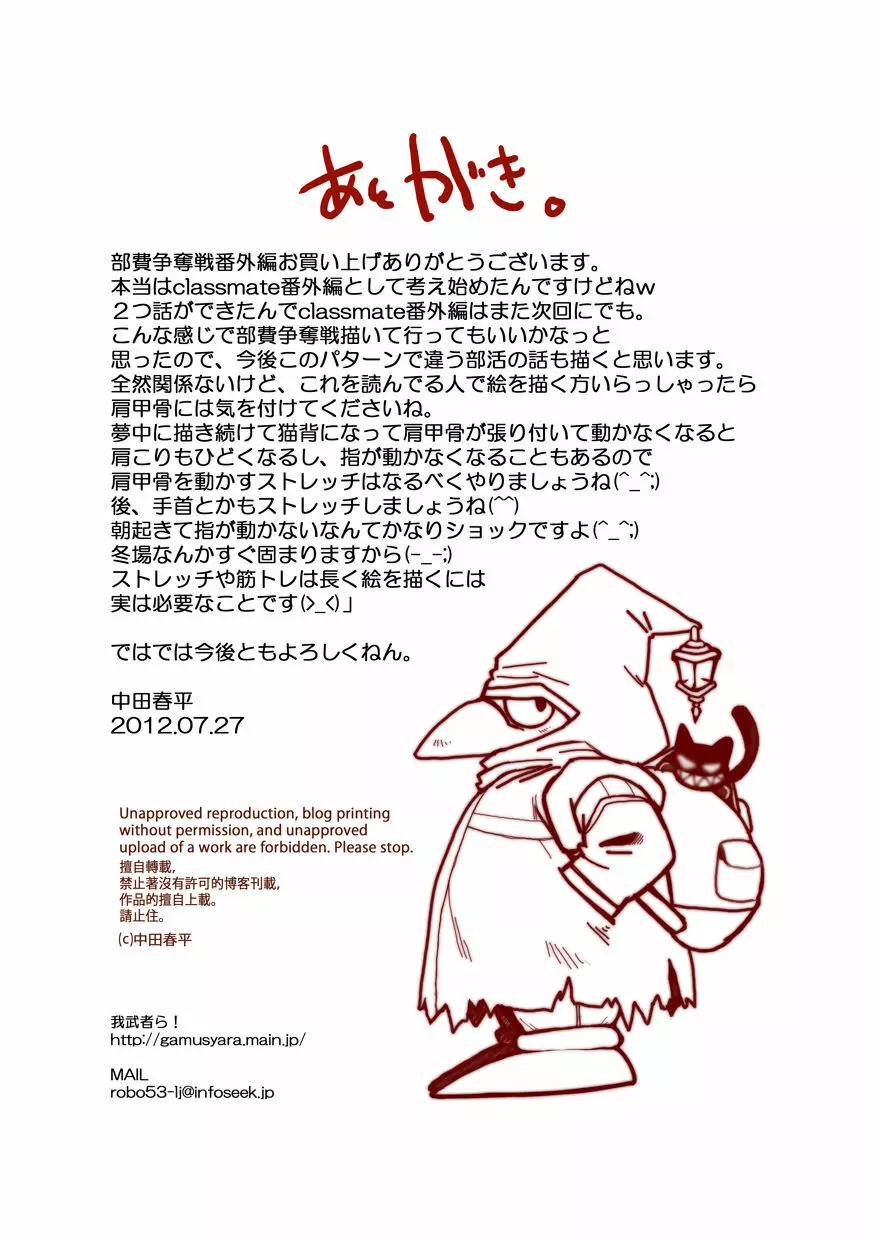 あとがき。
部費争奪戦番外編お買い上げありがとうございます。
本当はclassmate番外編として考え始めたんですけどねw
2つ話ができたんでclassmate番外編はまた次回にでも。
こんな感じで部費争奪戦描いて行ってもいいかなっと
思ったので、今後このパターンで違う部活の話も描くと思います。
全然関係ないけど、これを読んでる人で絵を描く方いらっしゃったら
肩甲骨には気を付けてくださいね。
夢中に描き続けて猫背になって肩甲骨が張り付いて動かなくなると
肩こりもひどくなるし、指が動かなくなることもあるので
肩甲骨を動かすストレッチはなるべくやりましょうね(^_^;)
後、手首とかもストレッチしましょうね(^^)
朝起きて指が動かないなんてかなりショックですよ(^_^;)
冬場なんかすぐ固まりますから(-_-;)
ストレッチや筋トレは長く絵を描くには
実は必要なことです(>_<)」
ではでは今後ともよろしくねん。
中田春平
2012.07.27
Unapproved reproduction, blog printing
without permission, and unapproved
upload of a work are forbidden. Please stop.
擅自轉載,
禁止著沒有許可的博客刊載,
作品的擅自上載。
請止住。
(c)中田春平
我武者ら!
http://gamusyara.main.jp/
MAIL
robo53-1j@infoseek.jp